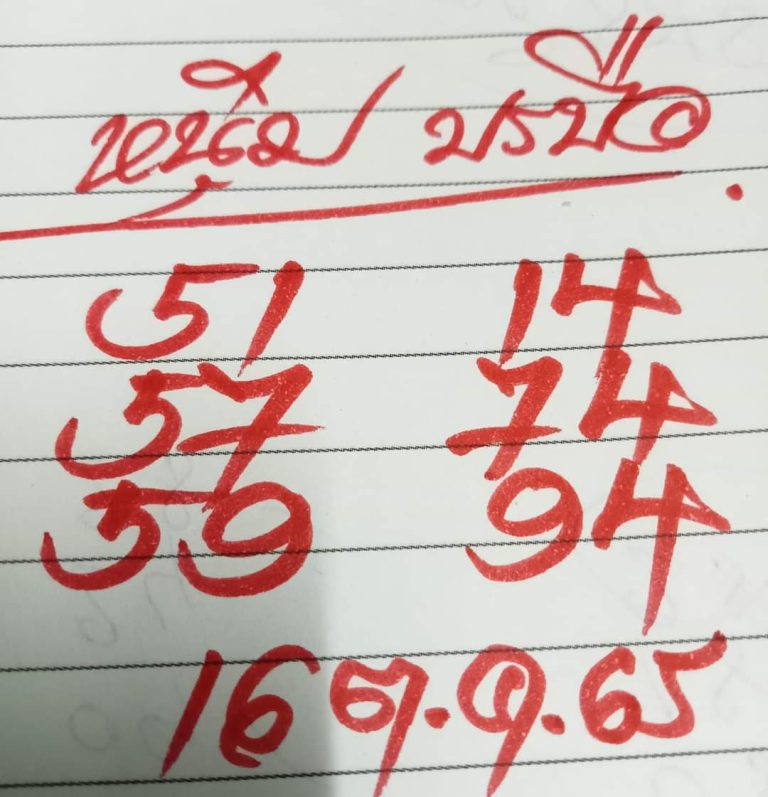 หนุ่ม บรบือ
51 14
57 74
59 94
16 ต.ค. 65